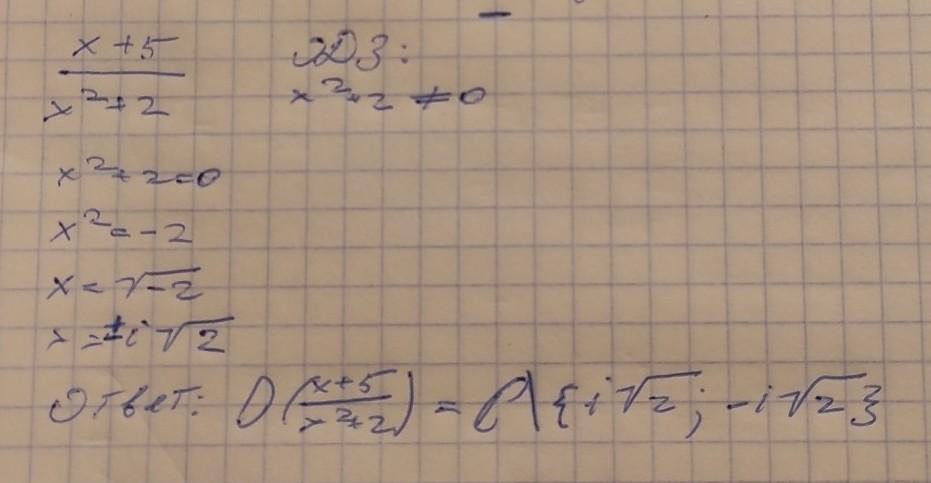 x+5 / x²+2 ОДЗ:
x²+2 ≠ 0
x²+2=0
x²=-2
x=√-2
x=±i√2
Ответ: D(x+5 / x²+2) = C\{i√2; -i√2}